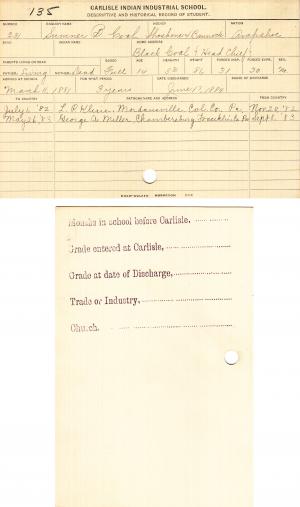 135
CARLISLE INDIAN INDUSTRIAL SCHOOL.
DESCRIPTIVE AND HISTORICAL RECORD OF STUDENT.
NUMBER ENGLISH NAME AGENCY NATION
Sumner B. Coal Shoshone & Bannock Arapahoe
BAND INDIAN NAME HOME ADDRESS
Black Coal, Head Chief
PARENTS LIVING OR DEAD BLOOD AGE HEIGHT WEIGHT FORCED INSP. FORCED EXPR. SEX
FATHER Living MOTHER Dead Full 14 31 30 M
ARRIVED AT SCHOOL FOR WHAT PERIOD DATE DISCHARGED CAUSE OF DISCHARGE
March 11, 1881 3 years June 17, 1884
TO COUNTRY PATRONS NAME AND ADDRESS FROM COUNTRY
July 6 '82 L. P. Kline, Mordansville, Col. Co. Pa. Nov. 20 '82
May 26 '83 George A. Miller Chambersburg Franklin Co. Pa. Sept 1 '83
Months in school before Carlisle,
Grade entered at Carlisle,
Grade at date of Discharge,
Trade or Industry,
Church.